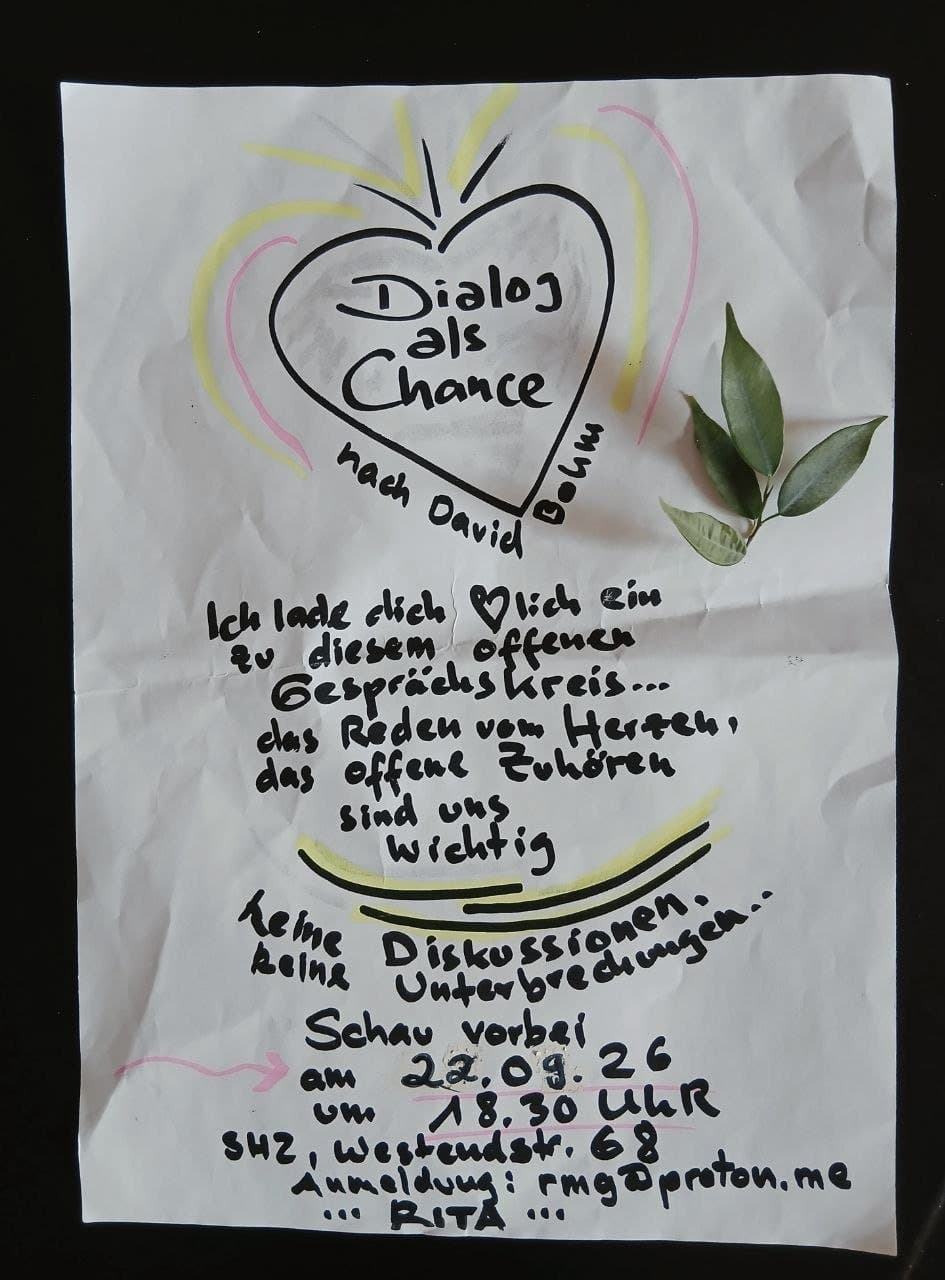 Dialog
als
Chance
nach David Bohm
Ich lade dich ♡lich ein
zu diesem offenen
Gesprächskreis...
das Reden vom Herzen,
das offene Zuhören
sind uns
wichtig
keine Diskussionen,
keine Unterbrechungen...
Schau vorbei
am 22.09.26
um 18.30 UhR
SHZ, Westendstr. 68
Anmeldung: rmg@proton.me
... RITA ...